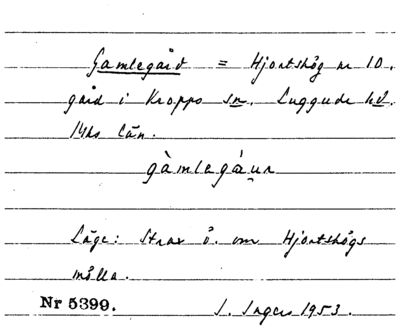 Gamlegård = Hjortshög nr 10.
gård i Kropps sn. Luggude hd.
Mhs län.
gàmlegáʉn
Läge: Strax ö. om Hjortshögs
mölla.
Nr 5399. S. Ingers 1953.